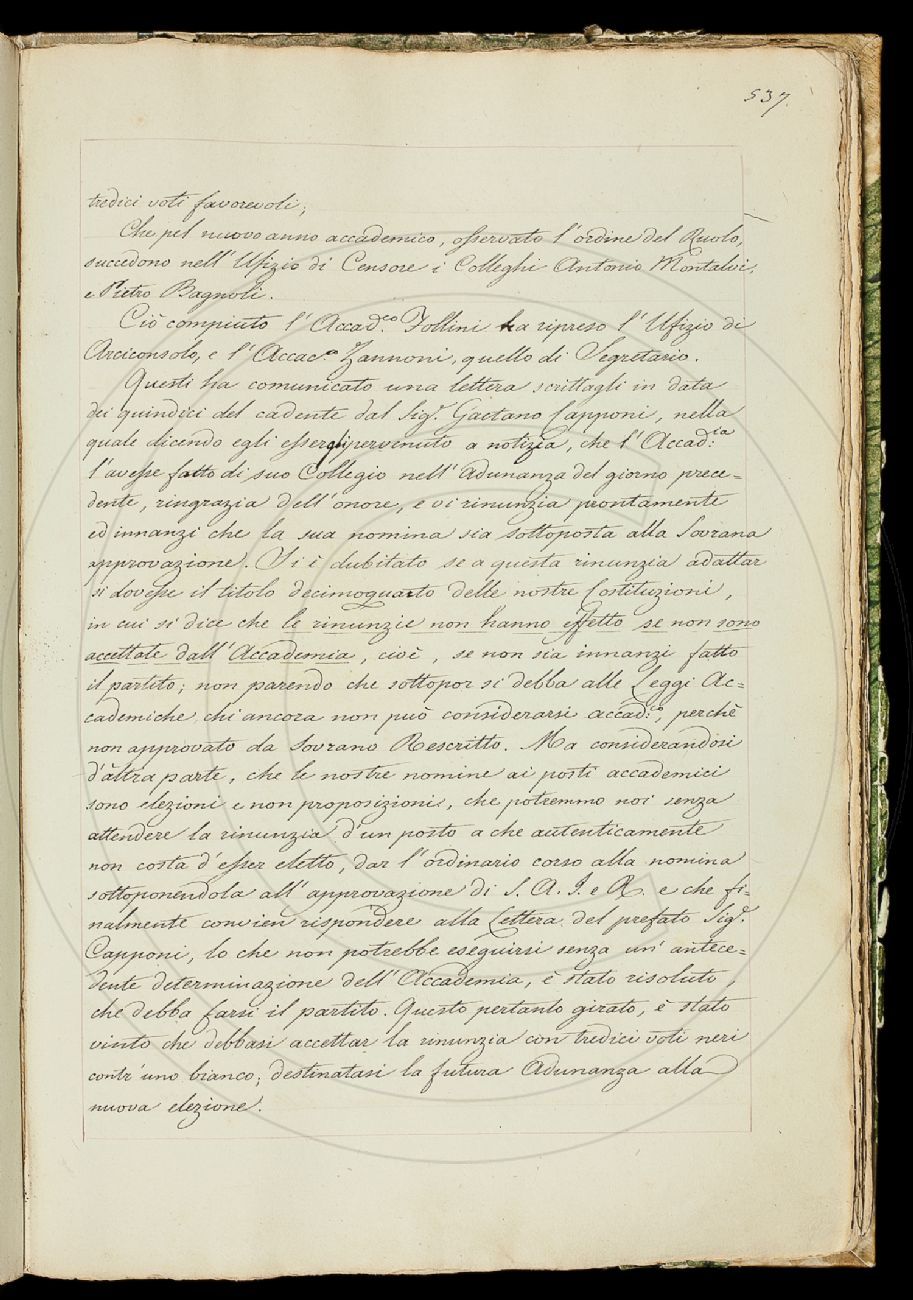 537.
tredici voti favorevoli;
Che pel nuovo anno accademico, osservato l'ordine del Ruolo,
succedono nell'Ufizio di Censore i Colleghi Antonio Montalvi,
e Pietro Bagnoli.
Ciò compiuto l'Accad.co Follini ha ripreso l'Ufizio di
Arciconsolo, e l'Accac.o Zannoni, quello di Segretario.
Questi ha comunicato una lettera scrittagli in data
dei quindici del cadente dal Sig.r Gaetano Capponi, nella
quale dicendo egli essergli pervenuto a notizia, che l'Accad.ia
l'avesse fatto di suo Collegio nell'Adunanza del giorno prece=
dente, ringrazia dell'onore, e vi rinunzia prontamente
ed innanzi che la sua nomina sia sottoposta alla Sovrana
approvazione. Si è dubitato se a questa rinunzia adattar
si dovesse il titolo decimoquarto delle nostre Costituzioni,
in cui si dice che le rinunzie non hanno effetto se non sono
accettate dall'Accademia, cioè, se non sia innanzi fatto
il partito; non parendo che sottopor si debba alle Leggi Ac=
cademiche chi ancora non può considerarsi accad.co, perchè
non approvato da Sovrano Rescritto. Ma considerandosi
d'altra parte, che le nostre nomine ai posti accademici
sono elezioni e non proposizioni, che potremmo noi senza
attendere la rinunzia d'un posto a che autenticamente
non costa d'esser eletto, dar l'ordinario corso alla nomina
sottoponendola all'approvazione di S. A. I. e R. e che fi=
nalmente convien rispondere alla Lettera del prefato Sig.r
Capponi, lo che non potrebbe eseguirsi senza un'antece=
dente determinazione dell'Accademia, è stato risoluto,
che debba farsi il partito. Questo pertanto girato, è stato
vinto che debbasi accettar la rinunzia con tredici voti neri
contr'uno bianco; destinatasi la futura Adunanza alla
nuova elezione.